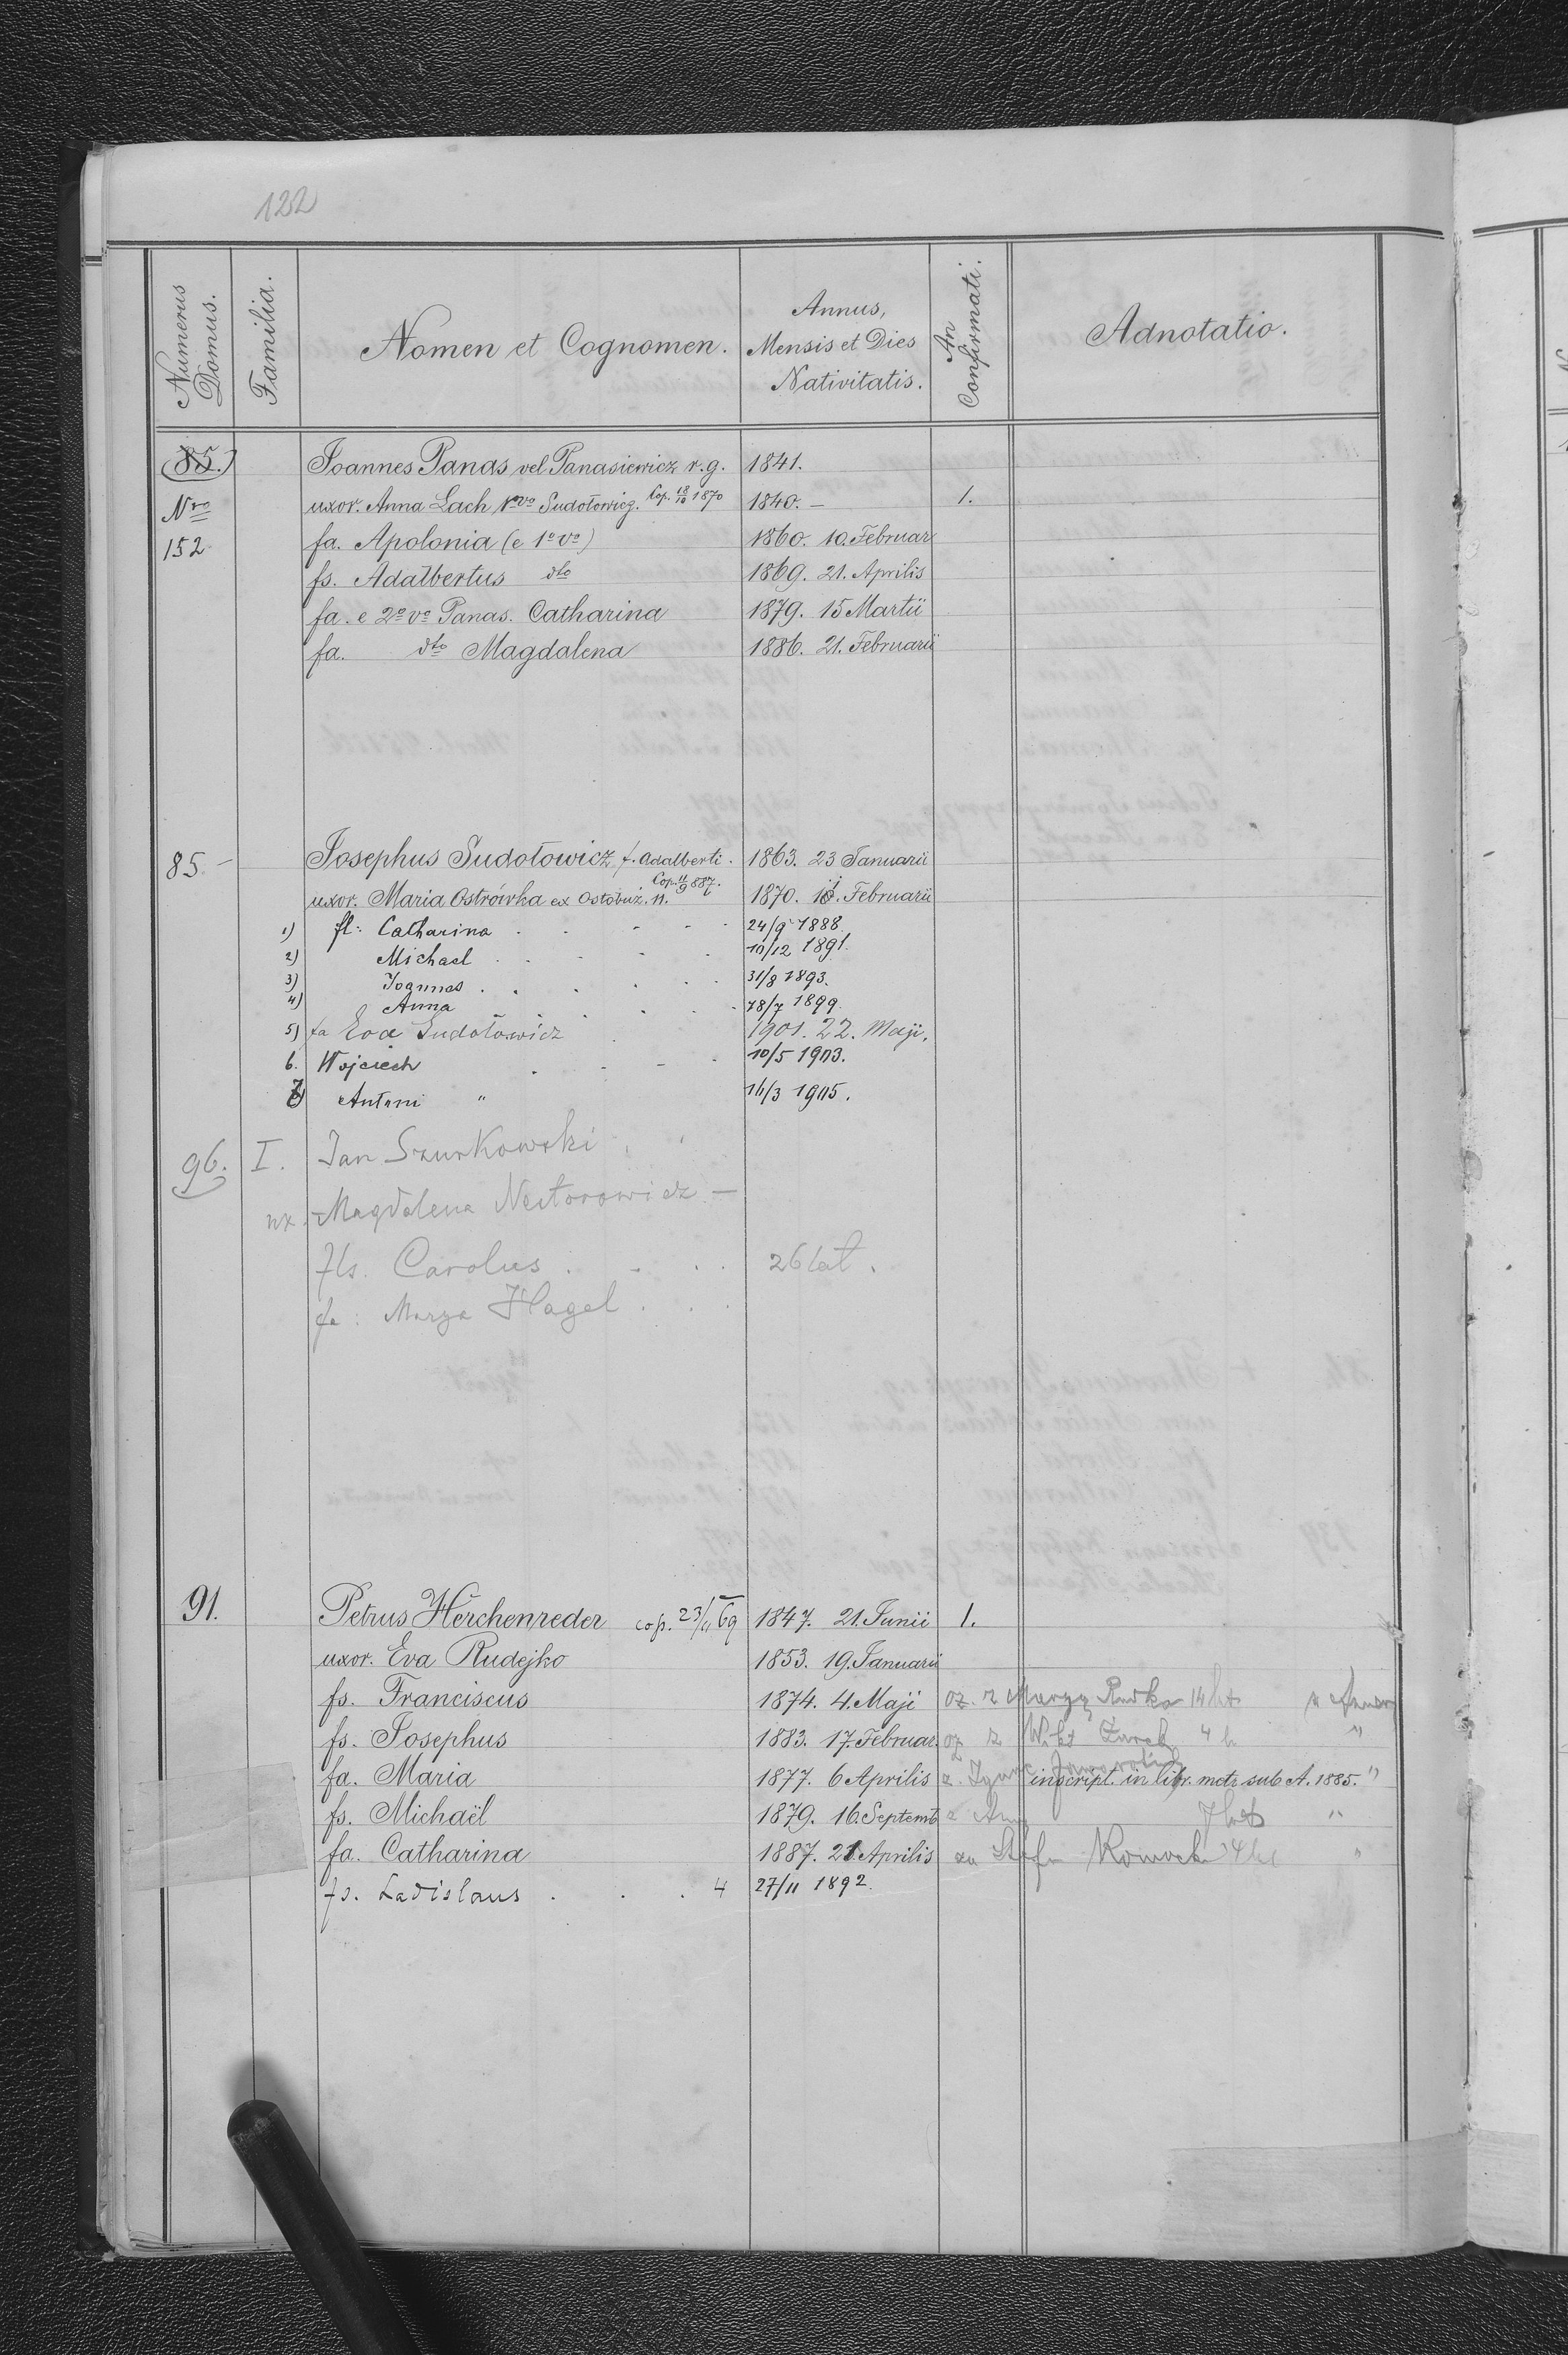 122
Numerus Domus.
Familia.
Nomen et Cognomen.
Annus, Mensis et Dies Nativitatis.
An Confirmati.
Adnotatio.
(85.) Joannes Panas vel Panasiewicz r.g. 1841.
Nro uxor. Anna Lach 1o vo Sudołowicz. Cop. 18/10 1870 1840. – 1.
152 fa. Apolonia (e 1o vo) 1860. 10. Februar
fs. Adalbertus dto 1869. 21. Aprilis
fa. e 2o vo Panas. Catharina 1879. 15 Martii
fa. dto Magdalena 1886. 21. Februarii
85 – Josephus Sudołowicz f. Adalberti. 1863. 23 Januarii
uxor. Maria Ostrówka ex Ostobuż. n. Cop. 11/9 887. 1870. Februarii
1) fl: Catharina . . - - - 24/9 1888.
2) Michael . . - - . 10/12 1891.
3) Joannes . . . . . 31/8 1893.
4) Anna . . . 18/7 1899.
5) fa Eva Sudołowicz 1901. 22. Maji.
6. Wojciech . - - - 10/5 1903.
7) Antoni " 14/3 1905.
96. I. Jan Szurkowski
ux. Magdalena Nestorowicz –
fls. Carolus . - . . 26 lat.
fa: Marya Hagel . . .
91. Petrus Herchenreder cop. 23/11 69 1847. 21. Junii 1.
uxor. Eva Rudejko 1853. 19. Januarii
fs. Franciscus 1874. 4. Maji oz. z Maryą 14 lat
fs. Josephus 1883. 17. Februar. oz z Wikt 4 l "
fa. Maria 1877. 6 Aprilis z. inscript. in libr. metr sub A. 1885. "
fs. Michaël 1879. 16. Septemb 7 lat "
fa. Catharina 1887. 21. Aprilis za "
fs. Ladislaus . . . 4 27/11 1892.